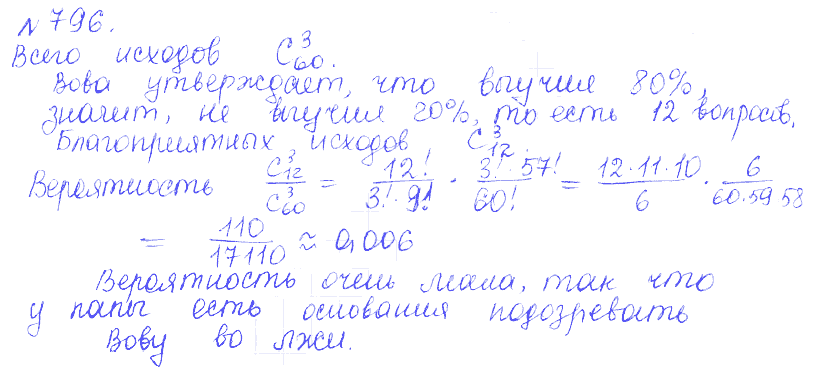 № 796.
Всего исходов C₆₀³.
Вова утверждает, что выучил 80%,
значит, не выучил 20%, то есть 12 вопросов.
Благоприятных исходов C₁₂³.
Вероятность C₁₂³/C₆₀³ = 12!/(3!·9!) · (3!·57!)/60! = (12·11·10)/6 · 6/(60·59 58)
= 110/17110 ≈ 0,006
Вероятность очень мала, так что
у папы есть основания подозревать
Вову во лжи.